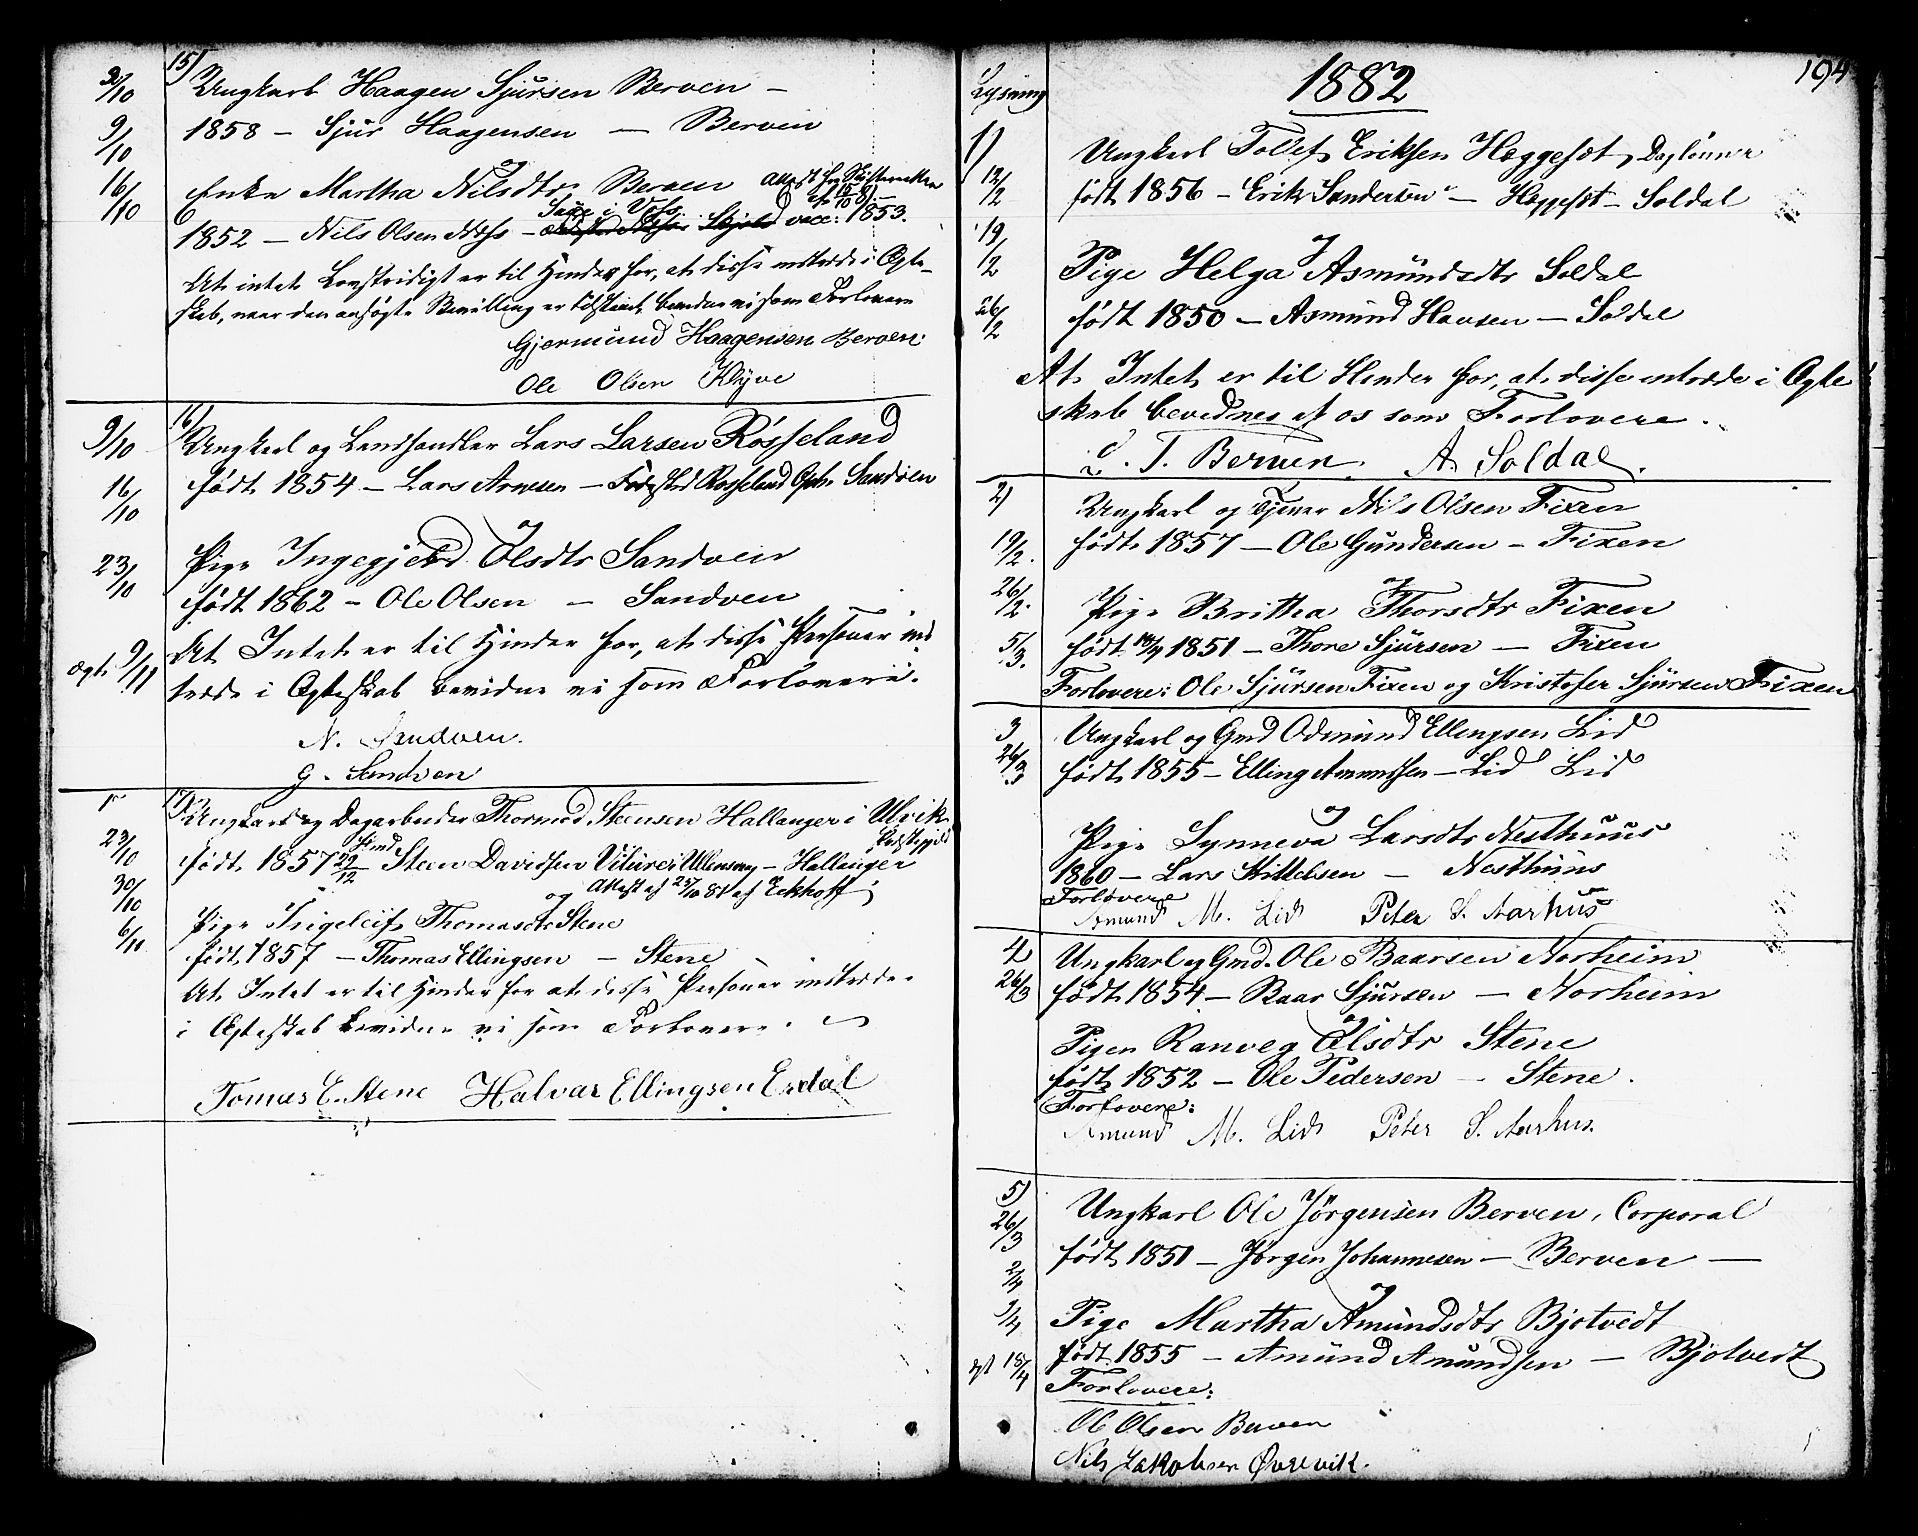 15)
2/10 Ungkarl Haagen Sjursen Berven –
9/10 1858 – Sjur Haagensen — Berven
og
16/10 Enke Martha Nilsdtr Berven Attest fra Skifteretten
af 15/10 81
Saue i Voss
1852 – Nils Olsen Næss – Skjeld vacc: 1853.
At intet Lovstridigt er til Hinder for, at disse indtræde i Ægte-
skab, naar den ansøgte Bevilling er tilstaaet, bevidne vi som Forlovere
Gjermund Haagensen Berven
Ole Olsen Klyve
16)
9/10 Ungkarl og Landhandler Lars Larsen Røsseland
16/10 født 1854 – Lars Arnesen – Fødested Røsseland Oph. Sandven
og
23/10 Pige Ingegjerd Olsdtr Sandven
født 1862 – Ole Olsen – Sandven
At Intet er til Hinder for, at disse Personer ind-
Ægt. 9/11 træde i Ægteskab bevidne vi som Forlovere.
N. Sandven.
G. Sandven
17)
Ungkarl og Dagarbeider Thormod Steensen Hallanger i Ulvik
Præstegjeld
23/10 født 1857 29/12 Steen Davidsen Viture i Ullensvang – Hallanger
30/10 og Attest af 25/10 81 af Eckhoff
Pige Ingeleif Thomasdtr Stene
6/11 født 1857 – Thomas Ellingsen – Stene
At Intet er til Hinder for at disse Personer indtræde
i Ægteskab bevidne vi som Forlovere.
Tomas E. Stene Halvar Ellingsen Erdal
194
Lysning 1882
1) Ungkarl Tollef Eriksen Heggesæt, Daglønner
12/2 født 1856 – Erik Sandersen – Heggesæt – Soldal
19/2 og
Pige Helga Asmundsdtr Soldal
26/2 født 1850 – Asmund Hansen – Soldal
At Intet er til Hinder for, at disse indtræde i Ægte
skab bevidnes af os som Forlovere.
L. T. Berven. A. Soldal.
2) Ungkarl og Tjener Nils Olsen Fixen
19/2. født 1857 – Ole Gundersen – Fixen
og
26/2. Pige Britha Thorsdtr Fixen
5/3. født 14/9 1851 – Thore Sjursen – Fixen
Forlovere: Ole Sjursen Fixen og Kristofer Sjursen Fixen
3 Ungkarl og Gmd Odmund Ellingsen Lid
26/3 født 1855 – Elling Amundsen – Lid Lid
og
Pige Synneva Larsdtr Nesthuus
1860 – Lars Kittelsen – Nesthuus
Forlovere
Amund M. Lid Peter S. Aarhus
4 Ungkarl og Gmd. Ole Baarsen Norheim
26/3 født 1854 – Baar Sjursen – Norheim
og
Pigen Ranveg Olsdtr Stene
født 1852 – Ole Pedersen – Stene.
Forlovere:
Amund M. Lid Peter S. Aarhus.
5)
26/3 Ungkarl Ole Jørgensen Berven, Corporal
født 1851 – Jørgen Johannesen – Berven –
2/4
og
9/4 Pige Martha Amundsdtr Bjotvedt
18/4 født 1855 – Amund Amundsen – Bjotvedt
Forlovere:
Ole Olsen Berven
Nils Jakobsen Øvrevik.